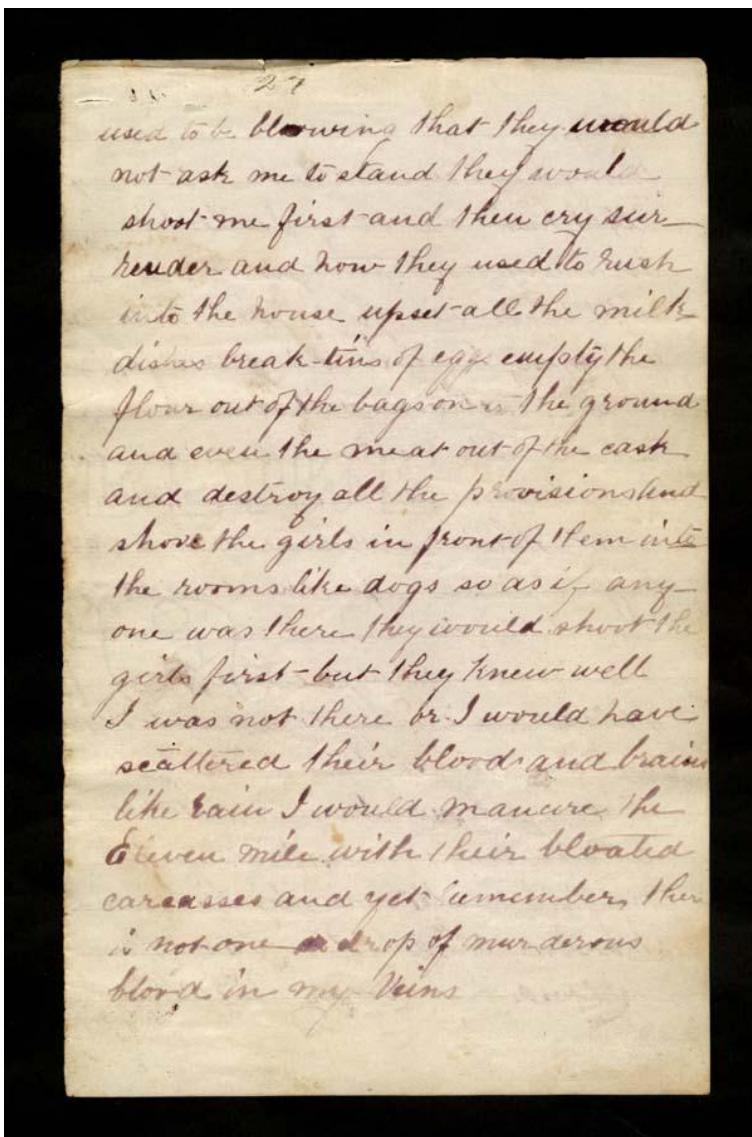 27
used to be blowing that they would
not ask me to stand they would
shoot me first and then cry sur-
render and how they used to rush
into the house upset all the milk
dishes break tins of eggs empty the
flour out of the bags on the ground
and even the meat out of the cask
and destroy all the provisions and
shove the girls in front of them into
the rooms like dogs so as if any-
one was there they would shoot the
girls first but they knew well
I was not there or I would have
scattered their blood and brains
like rain I would manure the
Eleven mile with their bloated
carcasses and yet remember ther
is not one drop of murderous
blood in my Veins